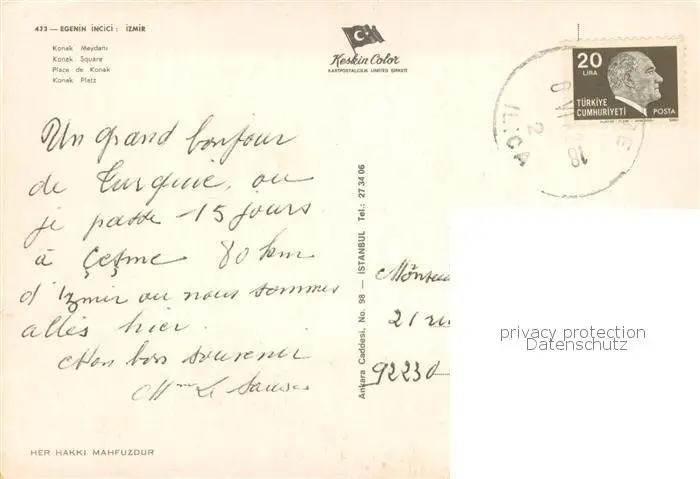 433 — EGENİN İNCİCİ : İZMİR
Konak Meydanı
Konak Square
Place de Konak
Konak Platz
Keskin Color
KARTPOSTALCILIK LİMİTED ŞİRKETİ
20
LİRA
TÜRKİYE
CUMHURİYETİ
POSTA
ILICA
2
18
Un grand bonjour
de Turquie, ou
je passe 15 jours
à Çeşme 80 km
d'Izmir ou nous sommes
allés hier.
Mon bon souvenir
Mme Le
Ankara Caddesi, No. 98 — İSTANBUL Tel.: 27 34 06
21
92230
privacy protection
Datenschutz
HER HAKKI MAHFUZDUR